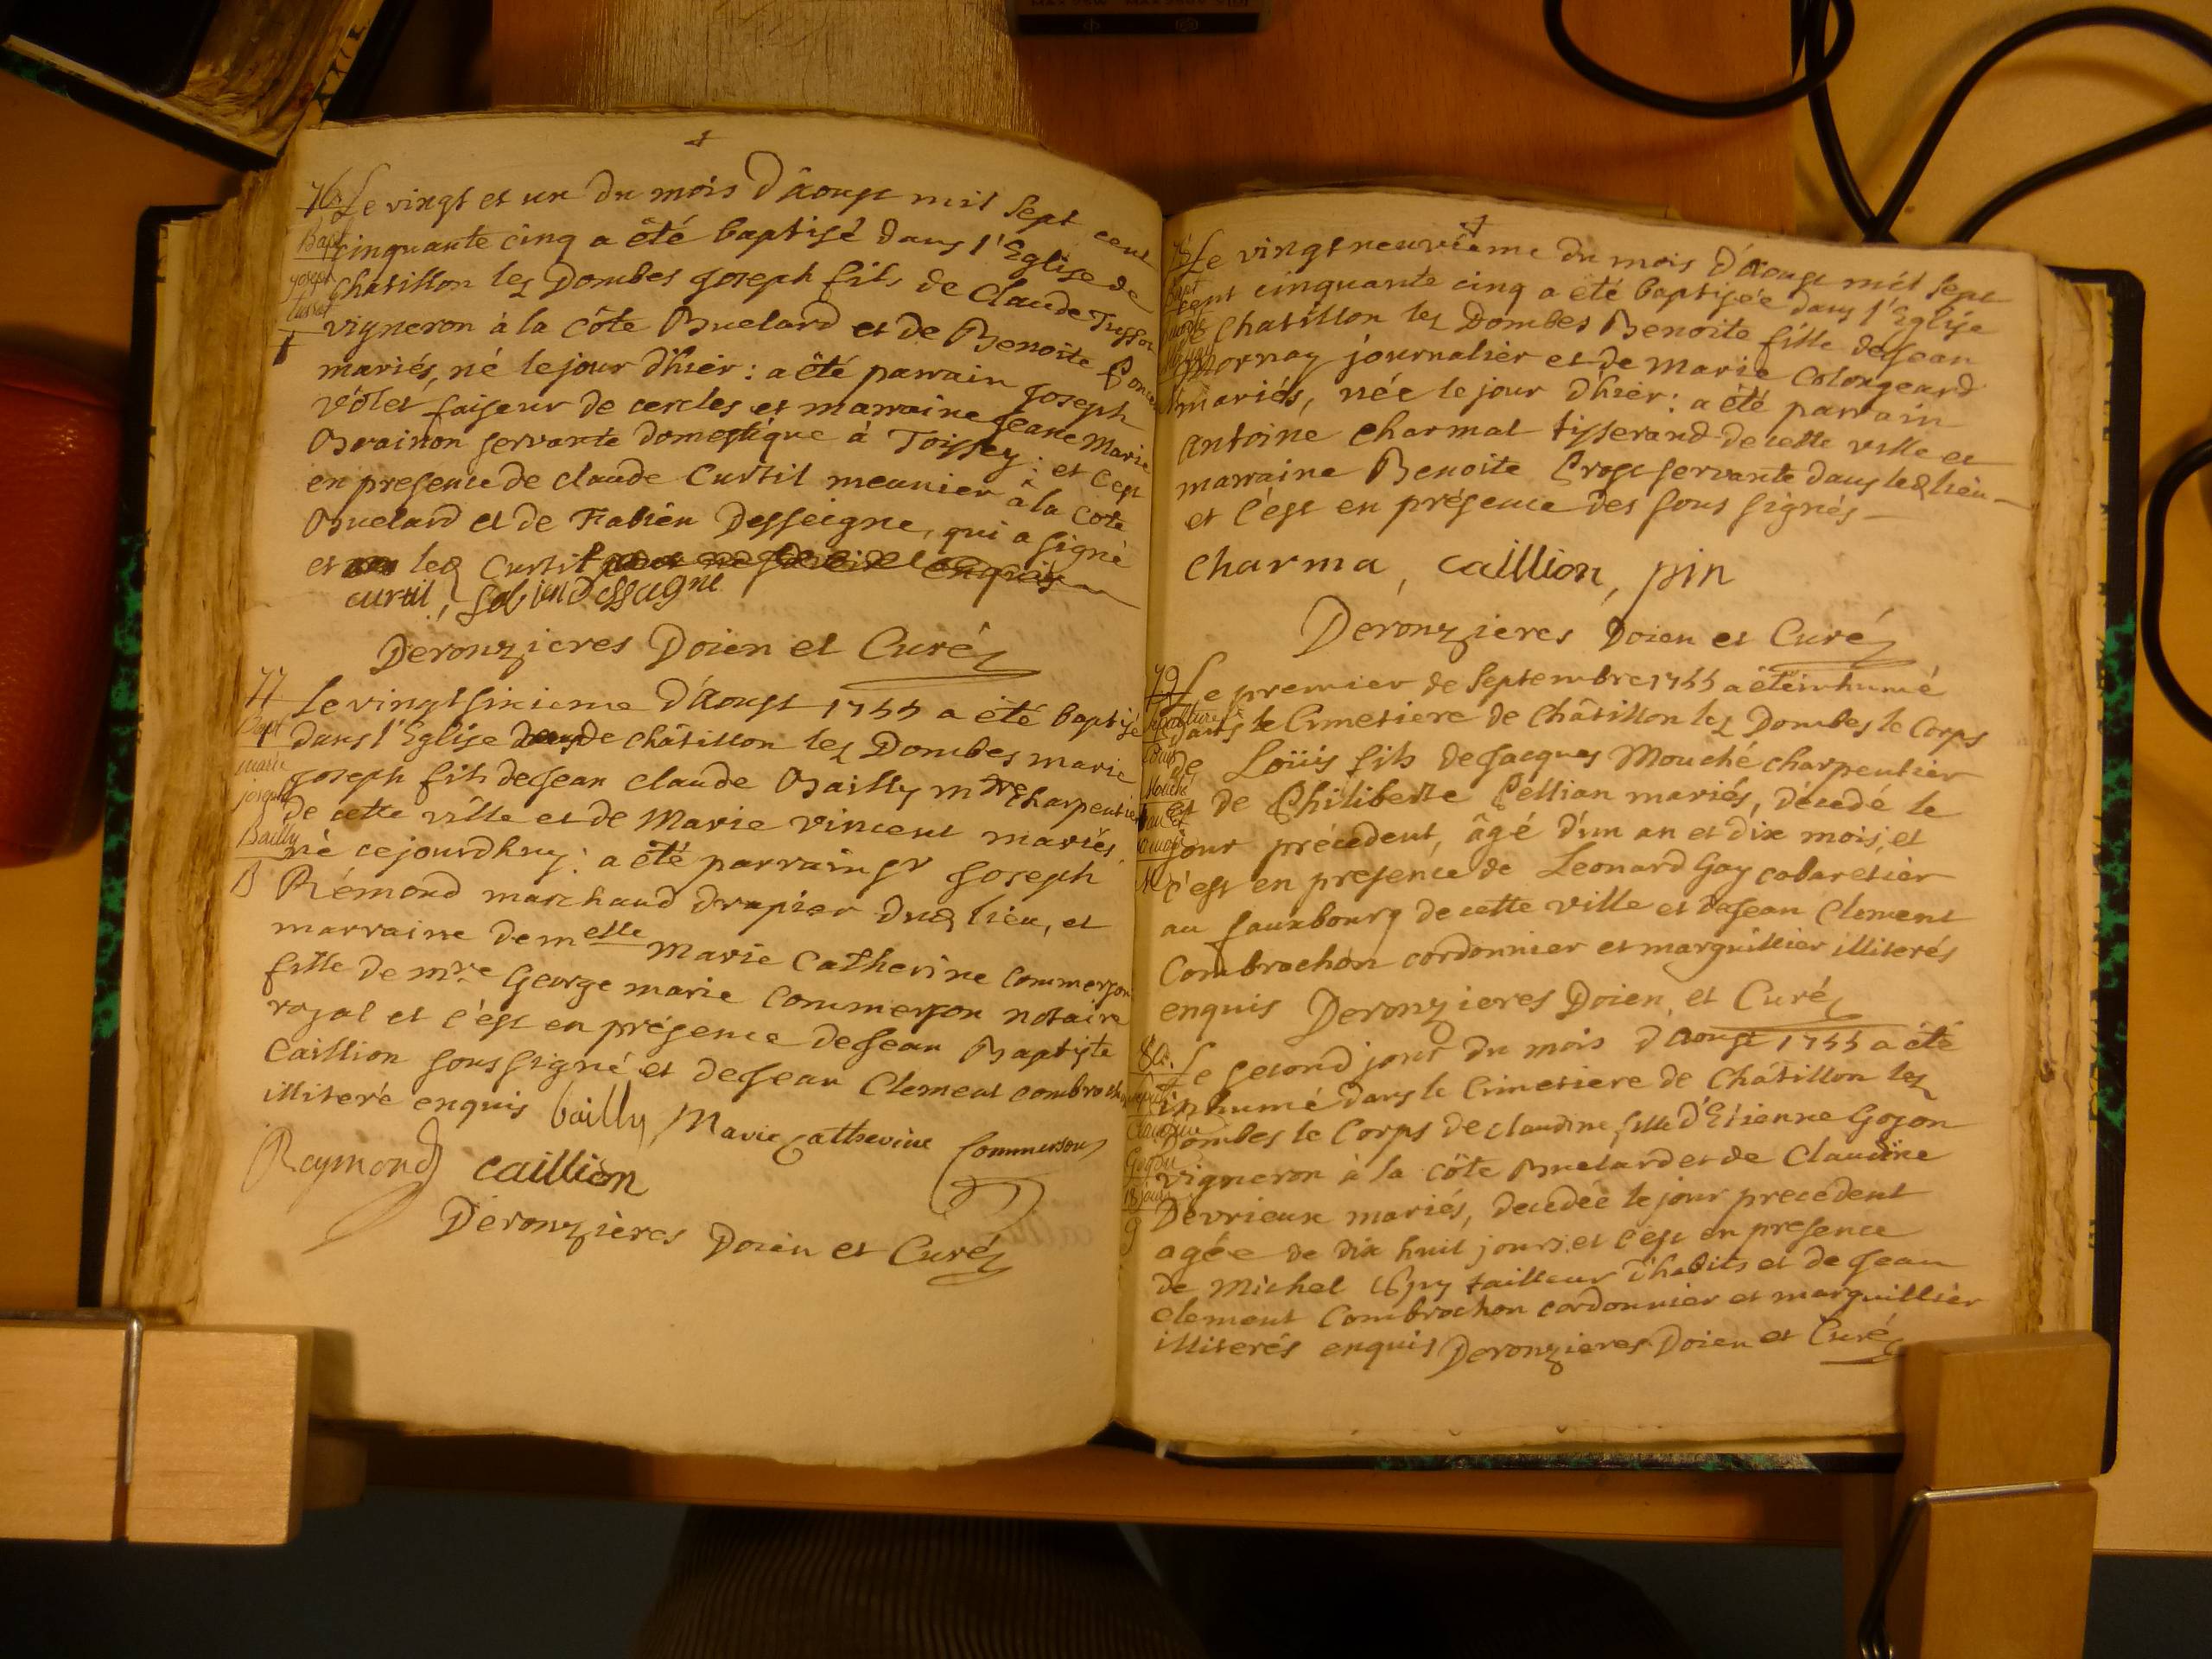 76
Le vingt et un du mois d'Aoust mil sept cent
Bapt
cinquante cinq a été baptisé dans l'Eglise de
joseph
Châtillon lez Dombes joseph fils de Claude Tussot
tussot
vigneron à la côte Buelard et de Benoite
mariés, né le jour d'hier : a été parrain joseph
vôlet faiseur de cercles et marraine jeane Marie
Brainon servante domestique à Toissey : et c'est
en presence de claude Curtil meunier à la côte
Buelard et de Fabien Desseigne, qui a signé
et led Curtil
curtil, fabien dessagne
Deronzieres Doien et Curé
77
Le vingt sixieme d'Aoust 1755 a été baptisé
Bapt
dans l'Eglise de châtillon lez Dombes marie
marie
joseph fils de jean claude Bailly mtre charpentier
joseph
de cette ville et de Marie vincent mariés,
Bailly
né ce jourdhuy : a été parrain sr joseph
B
Rémond marchand drapier dud lieu, et
marraine demelle Marie Catherine Commerson
fille de mre George marie Commerson notaire
royal et c'est en présence de jean Baptiste
Caillion soussigné et de jean Clement combrochon
illiteré enquis bailly Marie Catherine Commerson
Raymond caillion
Deronzières Doien et Curé
78
Le vingt neuvième du mois d'Aoust mil sept
Bapt
cent cinquante cinq a été baptisée dans l'Eglise
de Chatillon lez Dombes Benoite fille de jean
Mornay journalier et de Marie Colongeard
mariés, née le jour d'hier : a été parrain
Antoine Charmat tisserand de cette ville et
marraine Benoite Prost servante dans led lieu
et c'est en présence des sous signés
charma, caillion, pin
Deronzieres Doien et Curé
79
Le premier de Septembre 1755 a été inhumé
sepulture
dans le Cimetiere de Châtillon lez Dombes le Corps
Louis
de Loüis fils de jacques Mouché charpentier
Mouché
et de Philiberte Pellian mariés, décedé le
jour précedent, âgé d'un an et dix mois, et
c'est en presence de Leonard Gay cabaretier
au fauxbourg de cette ville et de jean Clement
Combrochon cordonnier et marguillier illiterés
enquis Deronzieres Doien, et Curé
80.
Le second jour du mois d'Aoust 1755 a été
inhumé dans le Cimetiere de Châtillon lez
Claudine
Dombes le Corps de claudine fille d'Etienne Gozon
Gozon
vigneron à la côte Buelard et de Claudine
18 jours
Devrieux mariés, decedée le jour precedent
G
agée de dix huit jours, et c'est en presence
de Michel Spy tailleur d'habits et de jean
clement Combrochon cordonnier et marguillier
illiterés enquis Deronzieres Doien et Curé